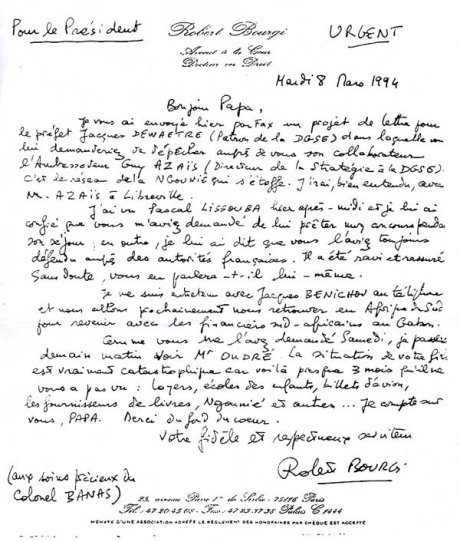 Pour le Président
Robert Bourgi
URGENT
Avocat à la Cour
Docteur en Droit
Mardi 8 Mars 1994
Bonjour Papa,
Je vous ai envoyé hier par Fax un projet de lettre pour
le préfet Jacques DEWAETRE (Patron de la DGSE) dans laquelle vous
lui demanderiez de dépêcher auprès de vous son collaborateur
l'Ambassadeur Guy AZAÏS (Directeur de la Stratégie à la DGSE).
C'est le réseau de la NGOUNIÉ qui s'étoffe. J'irai, bien entendu, avec
M. AZAÏS à Libreville.
J'ai vu Pascal LISSOUBA hier après-midi et je lui ai
confié que vous m'aviez demandé de lui prêter mon concours pendant
son séjour ; en outre, je lui ai dit que vous l'aviez toujours
défendu auprès des autorités françaises. Il a été ravi et rassuré
Sans doute, vous en parlera-t-il lui-même.
Je me suis entretenu avec Jacques BENICHOU au téléphone
et nous allons prochainement nous retrouver en Afrique du Sud
pour revenir avec les financiers sud-africains au Gabon.
Comme vous me l'avez demandé Samedi, je passerai
demain matin voir Mr OUDRÉ. La situation de votre fils
est vraiment catastrophique car voilà presque 3 mois qu'il ne
vous a pas vu : Loyers, écoles des enfants, billets d'avion,
les fournisseurs de livres, Ngounié et autres... Je compte sur
vous, PAPA. Merci du fond du coeur.
Votre fidèle et respectueux serviteur
Robert BOURGI
(aux soins précieux du
Colonel BANAS)
23, avenue Pierre 1er de Serbie - 75116 Paris
Tél : 47.20.45.03 - Fax : 47.23.37.35 Palais C 1444
MEMBRE D'UNE ASSOCIATION AGRÉÉE LE RÈGLEMENT DES HONORAIRES PAR CHÈQUE EST ACCEPTÉ